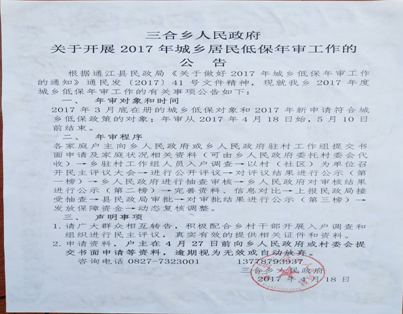 三合乡人民政府
关于开展 2017 年城乡居民低保年审工作的
公  告
根据通江县民政局《关于做好 2017 年城乡低保年审工作
的通知》通民发〔2017〕41 号文件精神，我乡 2017 年度
城乡低保年审工作的有关事项公告如下：
一、 年审对象和时间
2017 年 3 月底在册的城乡低保对象和 2017 年新申请符合城
乡低保政策的对象；年审从 2017 年 4 月 18 日始，5 月 10 日
前结束。
二、 年审程序
各家庭户主向乡人民政府或乡人民政府驻村工作组提交书
面申请及家庭状况相关资料（可由乡人民政府委托村委会代
收）→乡驻村工作组人员入户调查→以村（社区）为单位召
开民主评议大会→进行公开评议→对评议结果进行公示（第
一榜）→乡人民政府进行抽查审核→乡人民政府对审核结果
进行公示（第二榜）→完善资料、信息对比→上报民政局接
受抽查→县民政局审批→对审批结果进行公示（第三榜）→
发放保障资金→动态复核调整。
三、 声明事项
1.请广大群众相互转告，积极配合乡村干部开展入户调查和
组织进行民主评议，真实有效的提供相关证件和资料。
2.申请资料，户主在 4 月 27 日前向乡人民政府或村委会提
交书面申请等资料，逾期视为无效或自动放弃。
咨询电话 0827-7323001  13778793937
三合乡人民政府
2017 年 4 月 18 日